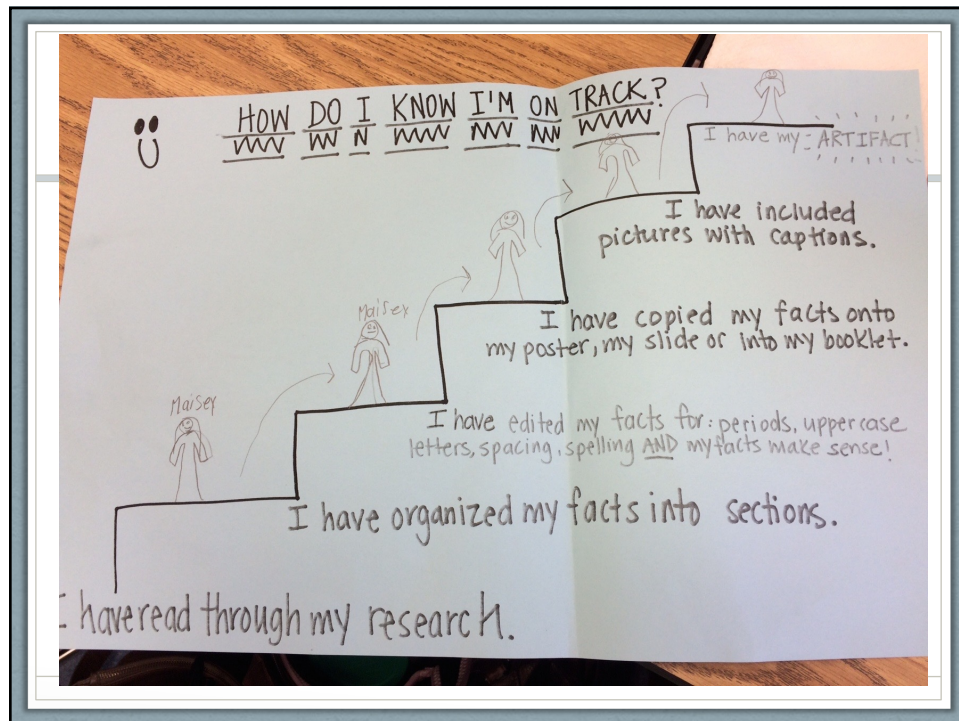 HOW DO I KNOW I'M ON TRACK?
I have my: ARTIFACT!
I have included
pictures with captions.
Maisey
I have copied my facts onto
my poster, my slide or into my booklet.
Maisey
I have edited my facts for: periods, uppercase
letters, spacing, spelling AND my facts make sense!
I have organized my facts into sections.
I have read through my research.